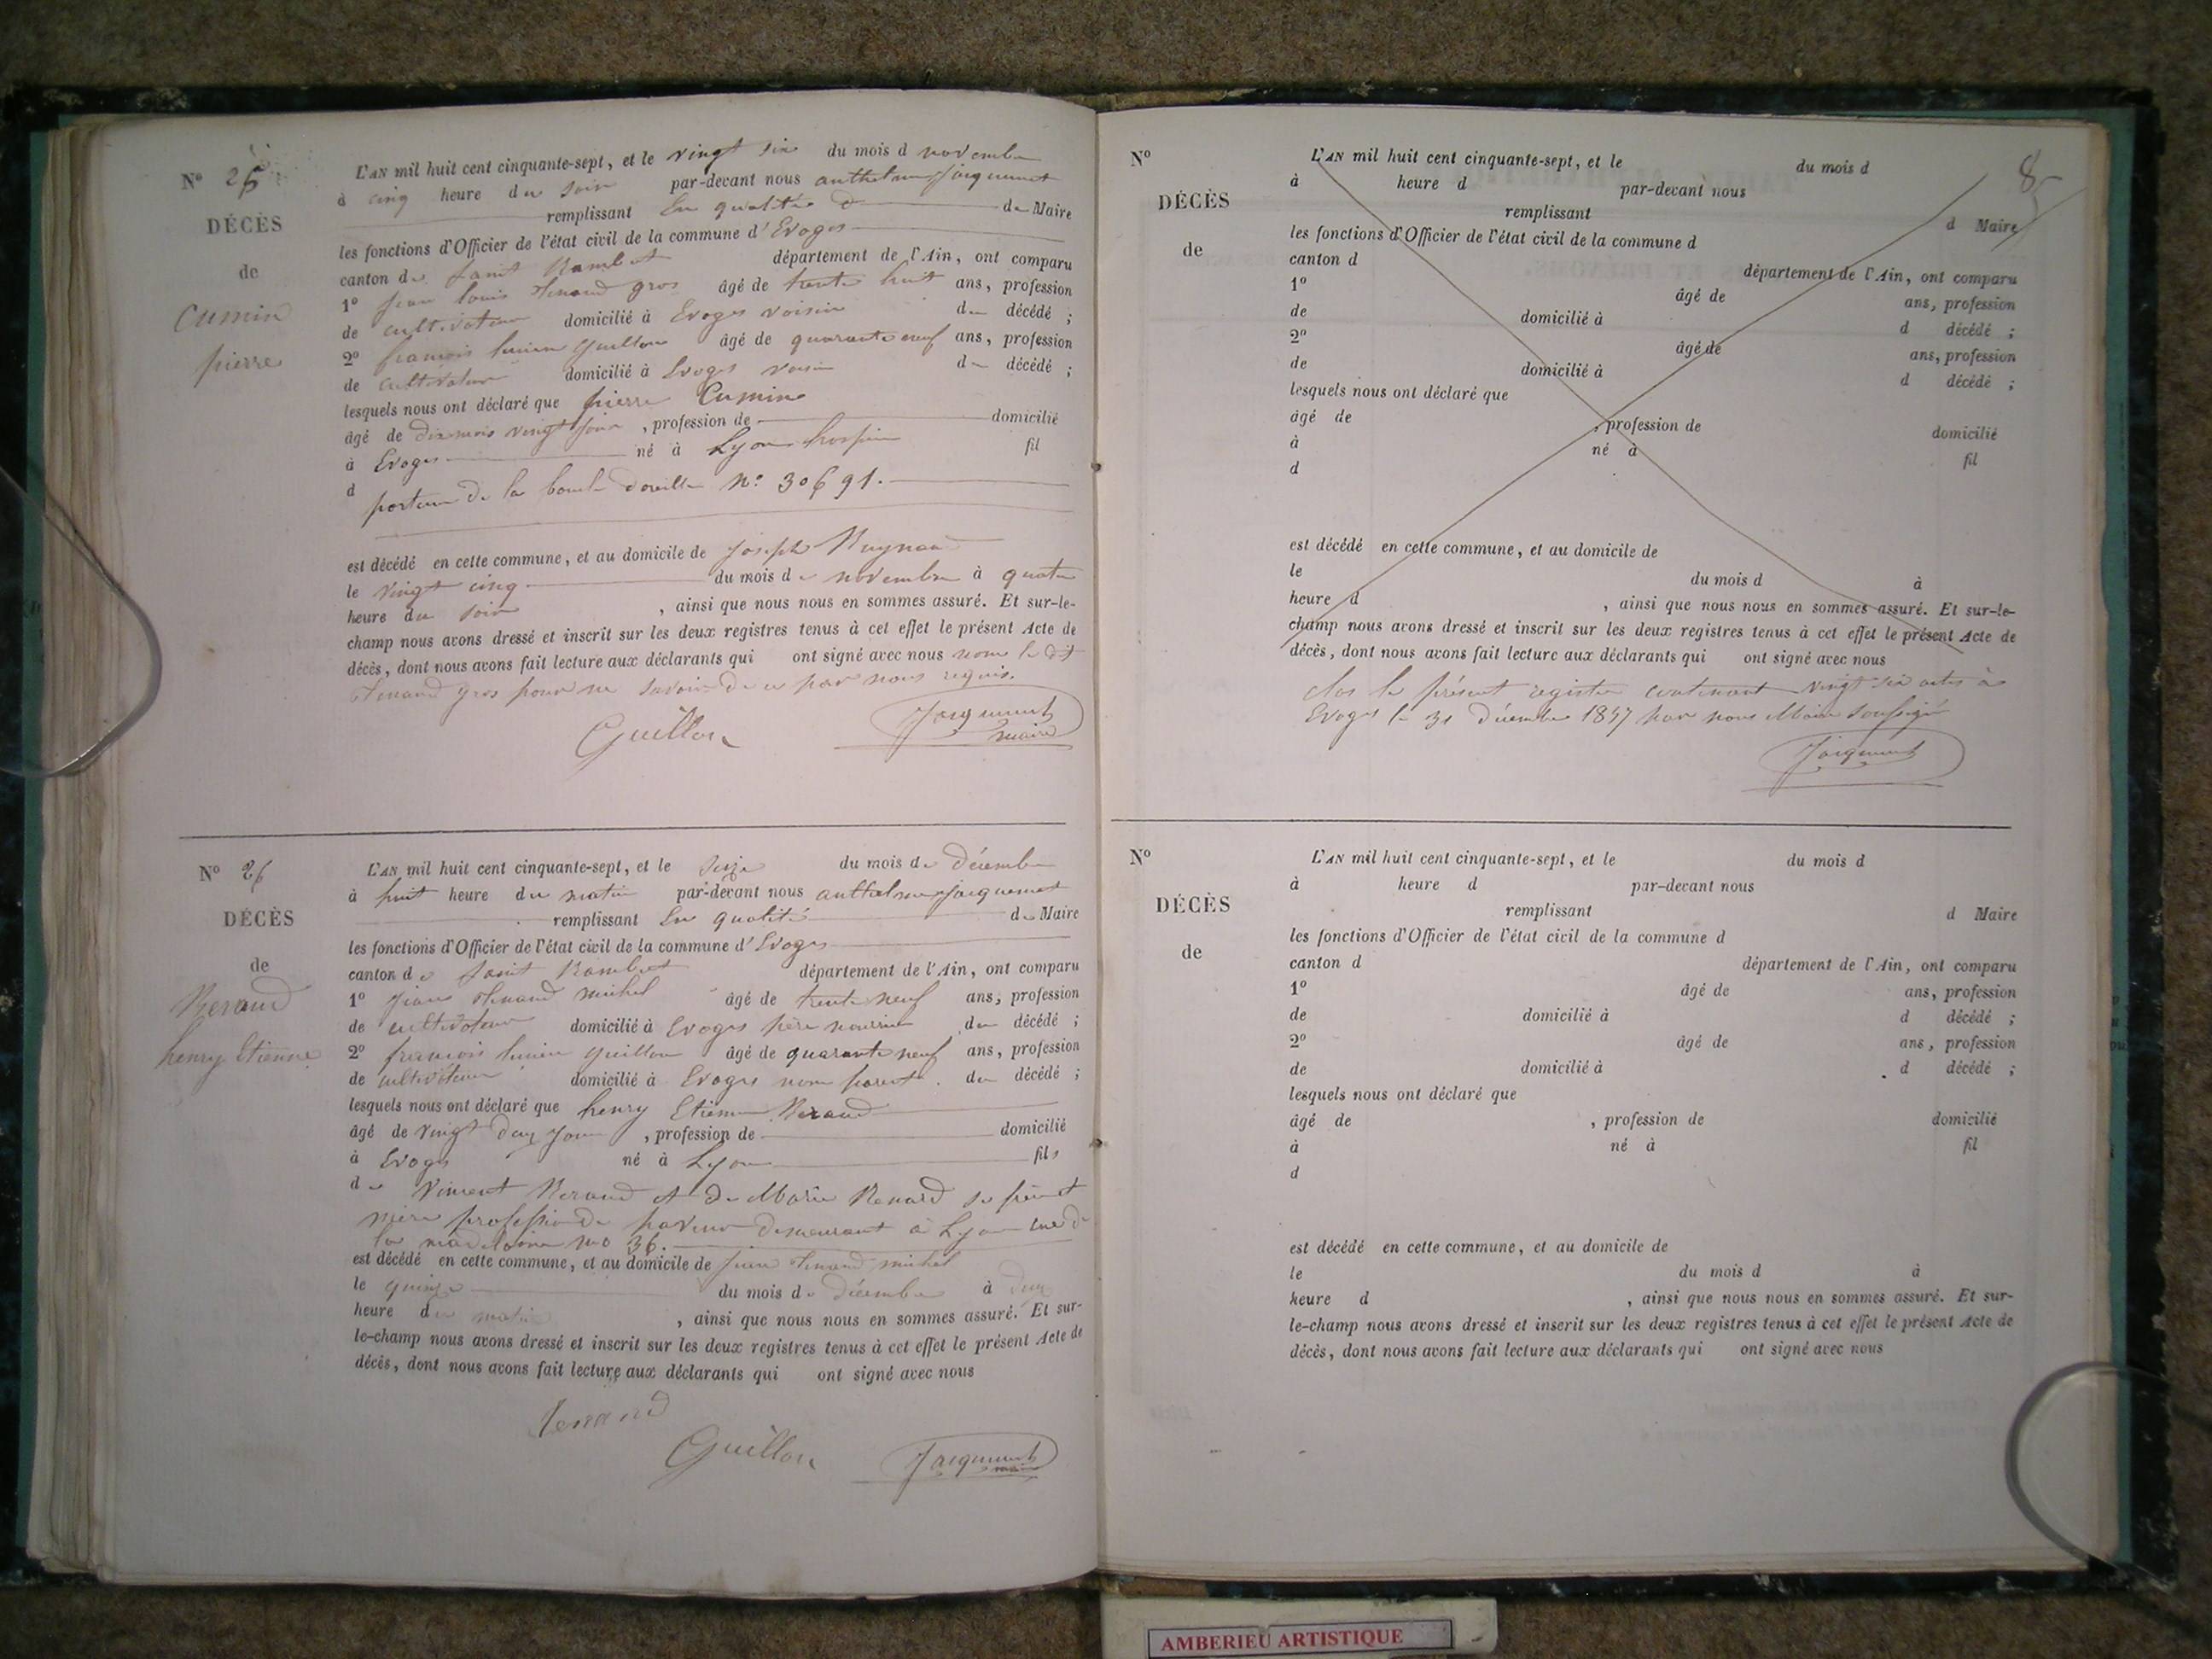 N° 25
DÉCÈS
de
Cumin
pierre
L'AN mil huit cent cinquante-sept, et le vingt six du mois d novembre
à cinq heure du soir par-devant nous anthelme Jacquemet
remplissant En qualité d de Maire
les fonctions d'Officier de l'état civil de la commune d'Evoges
canton de Saint Rambert département de l'Ain, ont comparu
1° jean louis tenand gros âgé de trente huit ans, profession
de cultivateur domicilié à Evoges voisin du décédé ;
2° francois lucien Guillon âgé de quarante neuf ans, profession
de cultivateur domicilié à Evoges voisin du décédé ;
lesquels nous ont déclaré que pierre Cumin
âgé de dix mois vingt jour , profession de domicilié
à Evoges né à Lyon hospice fil
d porteur de la boucle d'oreille N° 30691.
est décédé en cette commune, et au domicile de Joseph
le vingt cinq du mois de novembre à quatre
heure du soir , ainsi que nous nous en sommes assuré. Et sur-le-
champ nous avons dressé et inscrit sur les deux registres tenus à cet effet le présent Acte de
décès, dont nous avons fait lecture aux déclarants qui ont signé avec nous non le dit
tenand gros pour ne savoir de ce par nous requis.
Guillon Jacquemet
maire
N° 26
DÉCÈS
de
Reraud
henry Etienne
L'AN mil huit cent cinquante-sept, et le seize du mois de décembre
à huit heure du matin par-devant nous anthelme Jacquemet
remplissant En qualité de Maire
les fonctions d'Officier de l'état civil de la commune d'Evoges
canton de Saint Rambert département de l'Ain, ont comparu
1° jean tenand michel âgé de trente neuf ans, profession
de cultivateur domicilié à Evoges père nourricier du décédé ;
2° francois lucien Guillon âgé de quarante neuf ans, profession
de cultivateur domicilié à Evoges non parent. du décédé ;
lesquels nous ont déclaré que henry Etienne Reraud
âgé de vingt deux jour , profession de domicilié
à Evoges né à Lyon fils
de Vincent Reraud et de Marie Renard se père et
mère profession de paveur demeurant à Lyon rue de
la madelaine no 36.
est décédé en cette commune, et au domicile de jean tenand michel
le quinze du mois de décembre à deux
heure du matin , ainsi que nous nous en sommes assuré. Et sur-
le-champ nous avons dressé et inscrit sur les deux registres tenus à cet effet le présent Acte de
décès, dont nous avons fait lecture aux déclarants qui ont signé avec nous
tenand
Guillon Jacquemet
maire
8
N°
DÉCÈS
de
L'AN mil huit cent cinquante-sept, et le du mois d
à heure d par-devant nous
remplissant d Maire
les fonctions d'Officier de l'état civil de la commune d
canton d département de l'Ain, ont comparu
1° âgé de ans, profession
de domicilié à d décédé ;
2° âgé de ans, profession
de domicilié à d décédé ;
lesquels nous ont déclaré que
âgé de , profession de domicilié
à né à fil
d
est décédé en cette commune, et au domicile de
le du mois d à
heure d , ainsi que nous nous en sommes assuré. Et sur-le-
champ nous avons dressé et inscrit sur les deux registres tenus à cet effet le présent Acte de
décès, dont nous avons fait lecture aux déclarants qui ont signé avec nous
clos le présent registre contenant vingt six actes à
Evoges le 31 décembre 1857 par nous Maire soussigné
Jacquemet
N°
DÉCÈS
de
L'AN mil huit cent cinquante-sept, et le du mois d
à heure d par-devant nous
remplissant d Maire
les fonctions d'Officier de l'état civil de la commune d
canton d département de l'Ain, ont comparu
1° âgé de ans, profession
de domicilié à d décédé ;
2° âgé de ans, profession
de domicilié à d décédé ;
lesquels nous ont déclaré que
âgé de , profession de domicilié
à né à fil
d
est décédé en cette commune, et au domicile de
le du mois d à
heure d , ainsi que nous nous en sommes assuré. Et sur-
le-champ nous avons dressé et inscrit sur les deux registres tenus à cet effet le présent Acte de
décès, dont nous avons fait lecture aux déclarants qui ont signé avec nous
AMBERIEU ARTISTIQUE